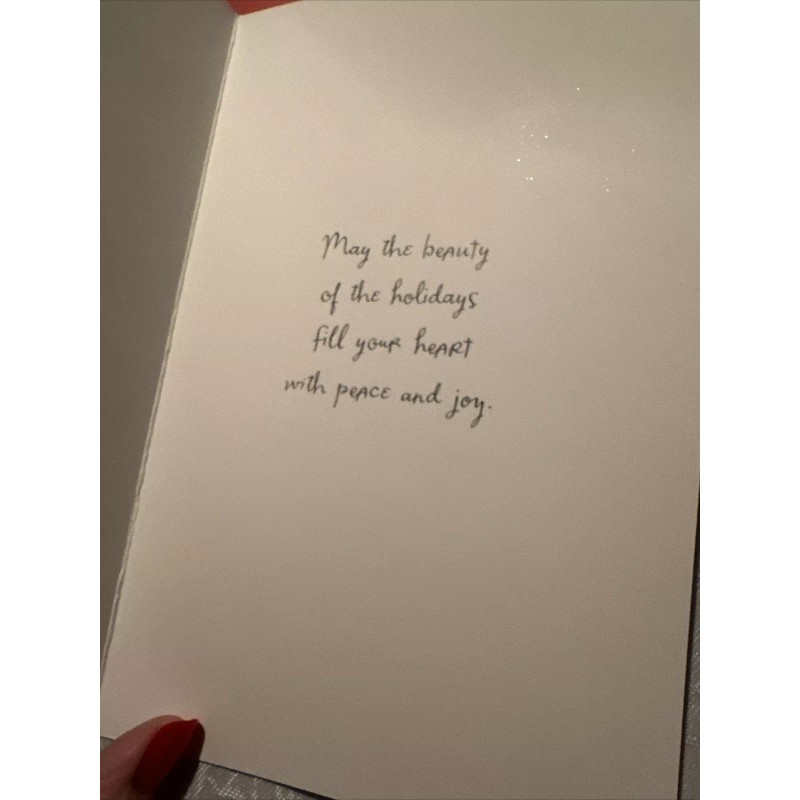 May the beauty
of the holidays
fill your heart
with peace and joy.